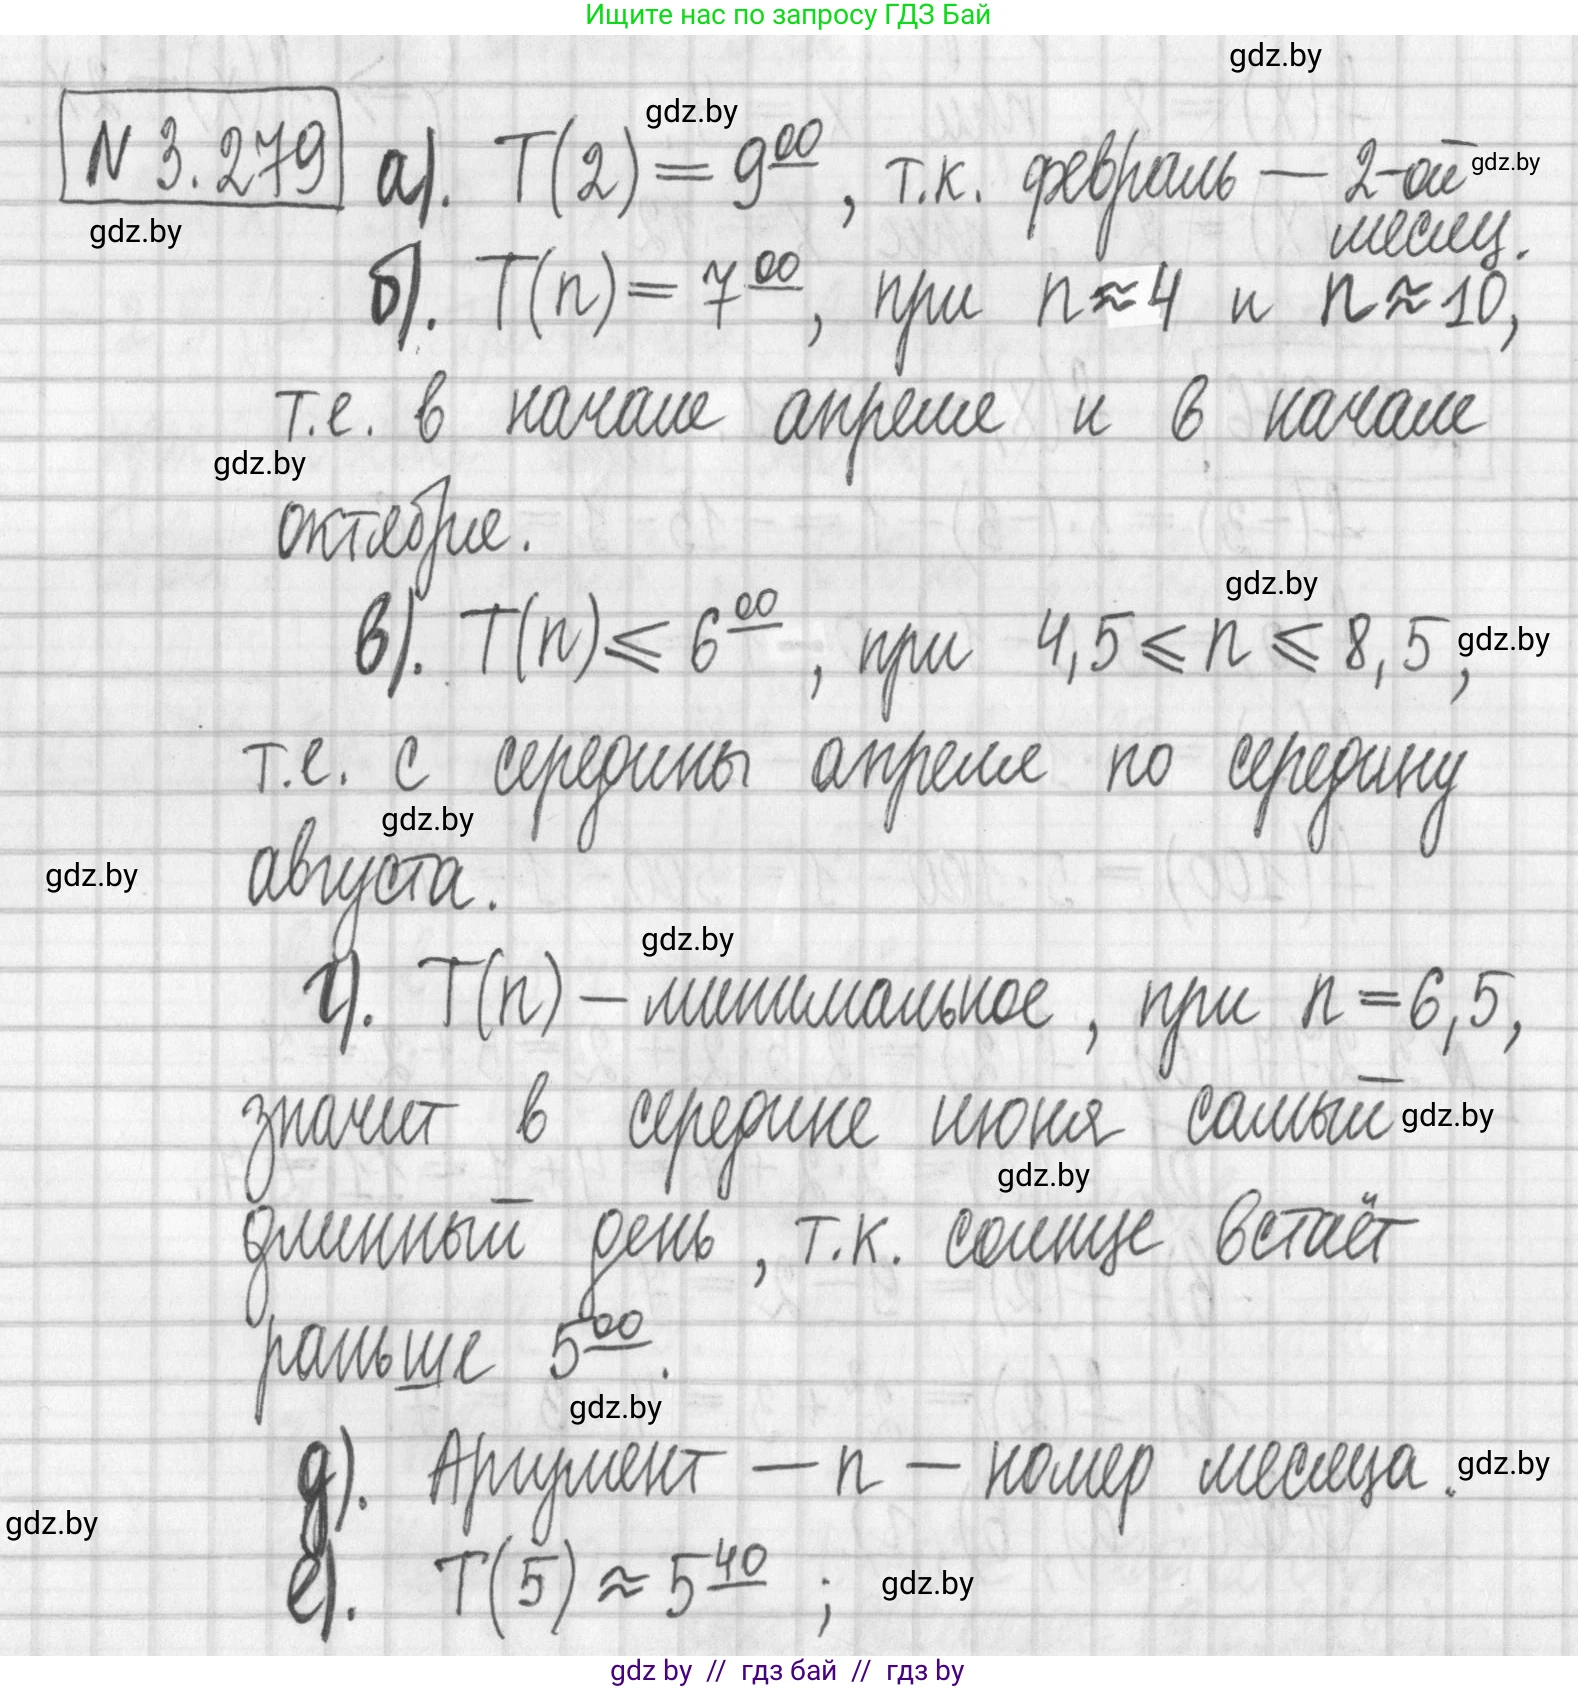 Ищите нас по запросу ГДЗ Бай
gdz.by
gdz.by
№ 3.279 а). T(2) = 9 00, т.к. февраль — 2-ой
gdz.by
месяц.
gdz.by
б). T(n) = 7 00, при n ≈ 4 и n ≈ 10,
т.е. в начале апреля и в начале
gdz.by
октября.
gdz.by
в). T(n) ⩽ 6 00, при 4,5 ⩽ n ⩽ 8,5,
gdz.by
т.е. с середины апреля по середину
gdz.by
августа.
gdz.by
gdz.by
г). T(n) — минимальное, при n = 6,5,
значит в середине июня самый
gdz.by
gdz.by
длинный день, т.к. солнце встаёт
раньше 5 00.
gdz.by
д). Аргумент — n — номер месяца.
gdz.by
gdz.by
е). T(5) ≈ 5 40;
gdz.by
gdz by // гдз бай // гдз by